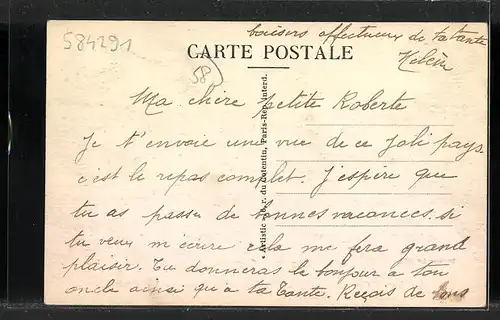 584291
baisers affectueux de ta tante
CARTE POSTALE
58
Ma chère petite Roberte
Je t'envoie une vue de ce joli pays
c'est le repas complet. J'espère que
tu as passé de bonnes vacances. si
tu veux m'écrire cela me fera grand
plaisir. Tu donneras le bonjour a ton
oncle ainsi qu'a ta Tante. Reçois de tous
Artistic 
 r. du Cotentin, Paris-Rep. Interd.